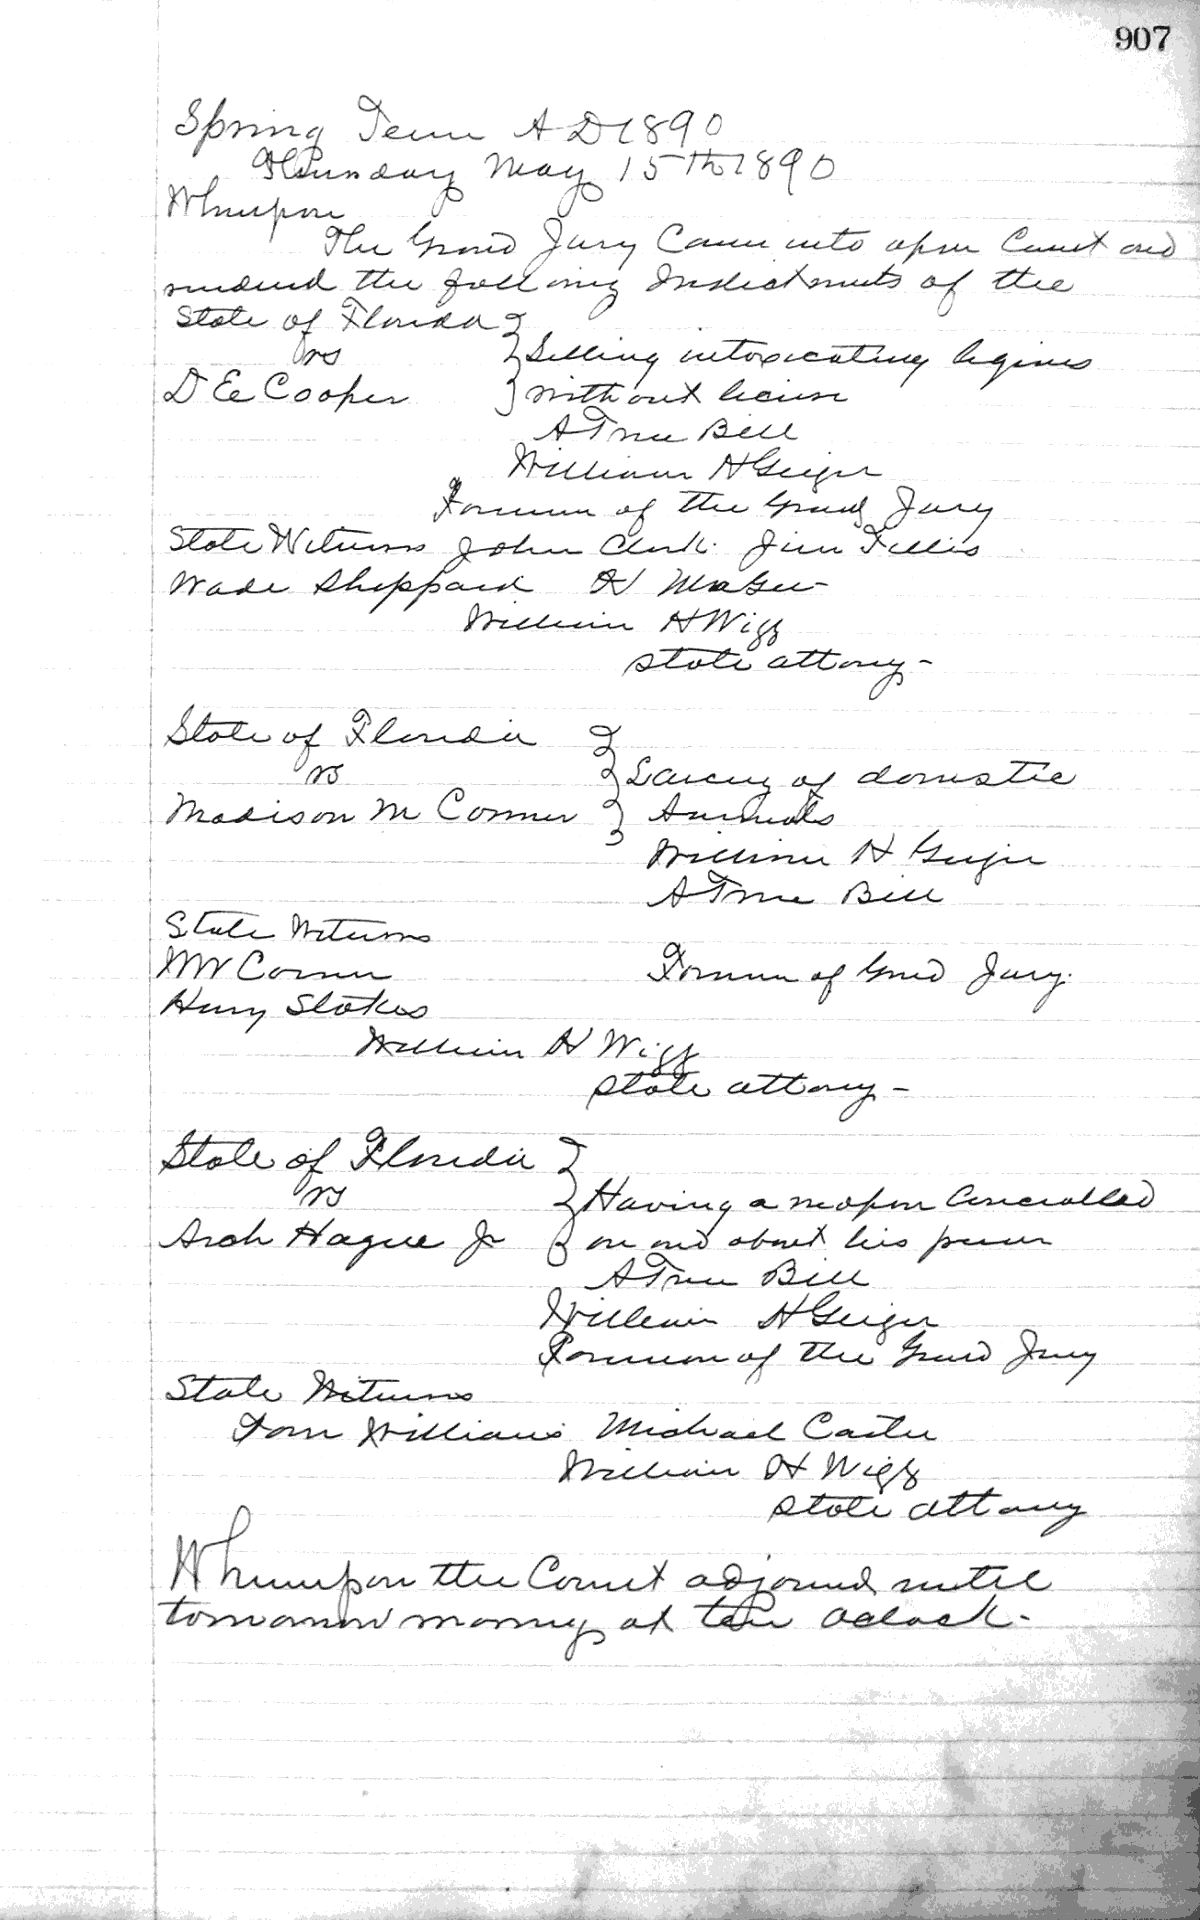 907
Spring Term A D 1890
Thursday May 15th 1890
Whereupon
The Grand Jury Came into open Court and
rendered the following Indictments of the
State of Florida
vs
Selling intoxicating liquors
D E Cooper without license
A True Bill
William H Geiger
Foreman of the Grand Jury
State Witness John Clark. Jim Tillis
Wade Sheppard H McGee
William H Wigg
State attorney -
State of Florida
vs Larceny of domestic
Madison M Conner Animals
William H Geiger
A True Bill
State Witness
W W Conner Foreman of Grand Jury.
Henry Stokes
William H Wigg
State attorny -
State of Florida
vs Having a weapon Concealled
Arch Hague Jr on and about his person
A True Bill
William H Geiger
Foreman of the Grand Jury
State Witness
Tom Williams Michael Carter
William H Wigg
State attorny
Whereupon the Court adjourned until
tomorrow morning at ten Oclock -